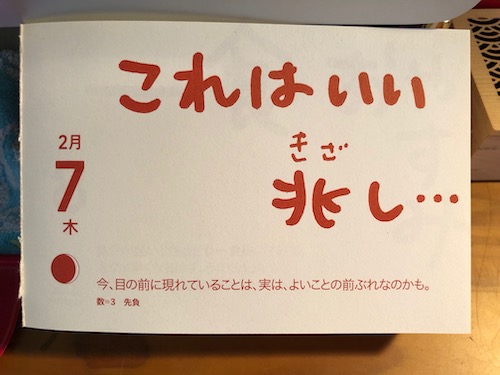 これはいい
きざ
兆し…
2月
7
木
今、目の前に現れていることは、実は、よいことの前ぶれなのかも。
数=3 先負